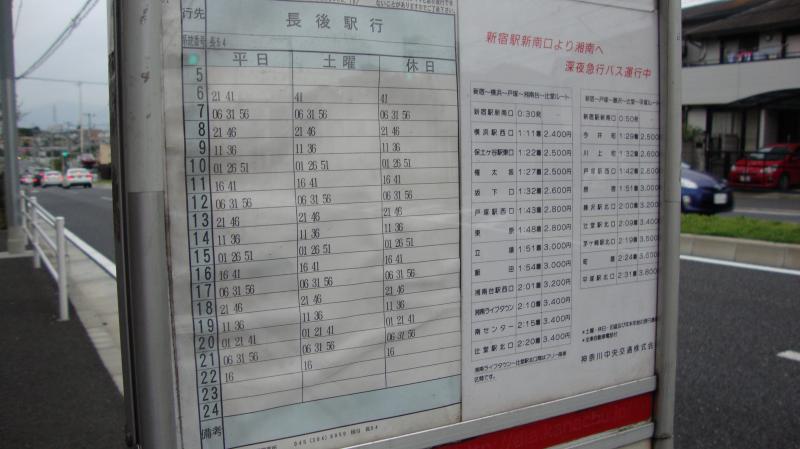 行先 長後駅行
系統番号 長54
平日 土曜 休日
5
6 21 41 41 41
7 06 31 56 06 31 56 06 31 56
8 21 46 21 46 21 46
9 11 36 11 36 11 36
10 01 26 51 01 26 51 01 26 51
11 16 41 16 41 16 41
12 06 31 56 06 31 56 06 31 56
13 21 46 21 46 21 46
14 11 36 11 36 11 36
15 01 26 51 01 26 51 01 26 51
16 16 41 16 41 16 41
17 06 31 56 06 31 56 06 31 56
18 21 46 21 46 21 46
19 11 36 11 36 11 36
20 01 21 41 01 21 41 01 21 41
21 06 31 56 06 31 56 06 31 56
22 16 16 16
23
24
備考
新宿駅新南口より湘南へ
深夜急行バス運行中
新宿〜横浜〜戸塚〜湘南台〜辻堂ルート
新宿駅新南口 0:30発
横浜駅西口 1:11着 2,400円
保土ヶ谷駅東口 1:22着 2,500円
権太坂 1:27着 2,500円
坂下口 1:32着 2,600円
戸塚駅西口 1:43着 2,800円
東原 1:48着 2,800円
立場 1:51着 3,000円
飯田 1:54着 3,000円
湘南台駅西口 2:01着 3,200円
湘南ライフタウン 2:10着 3,400円
南センター 2:15着 3,400円
辻堂駅北口 2:20着 3,400円
湘南ライフタウン〜辻堂駅北口間はフリー降車
区間です。
新宿〜戸塚〜藤沢〜辻堂〜平塚ルート
新宿駅新南口 0:50発
今井町 1:29着 2,500
川上町 1:32着 2,600
戸塚駅西口 1:42着 2,800
1:51着 3,000
藤沢駅北口 2:00着 3,200
辻堂駅北口 2:09着 3,400
茅ヶ崎駅北口 2:19着
2:24着
平塚駅北口 2:31着 3,800
神奈川中央交通株式会